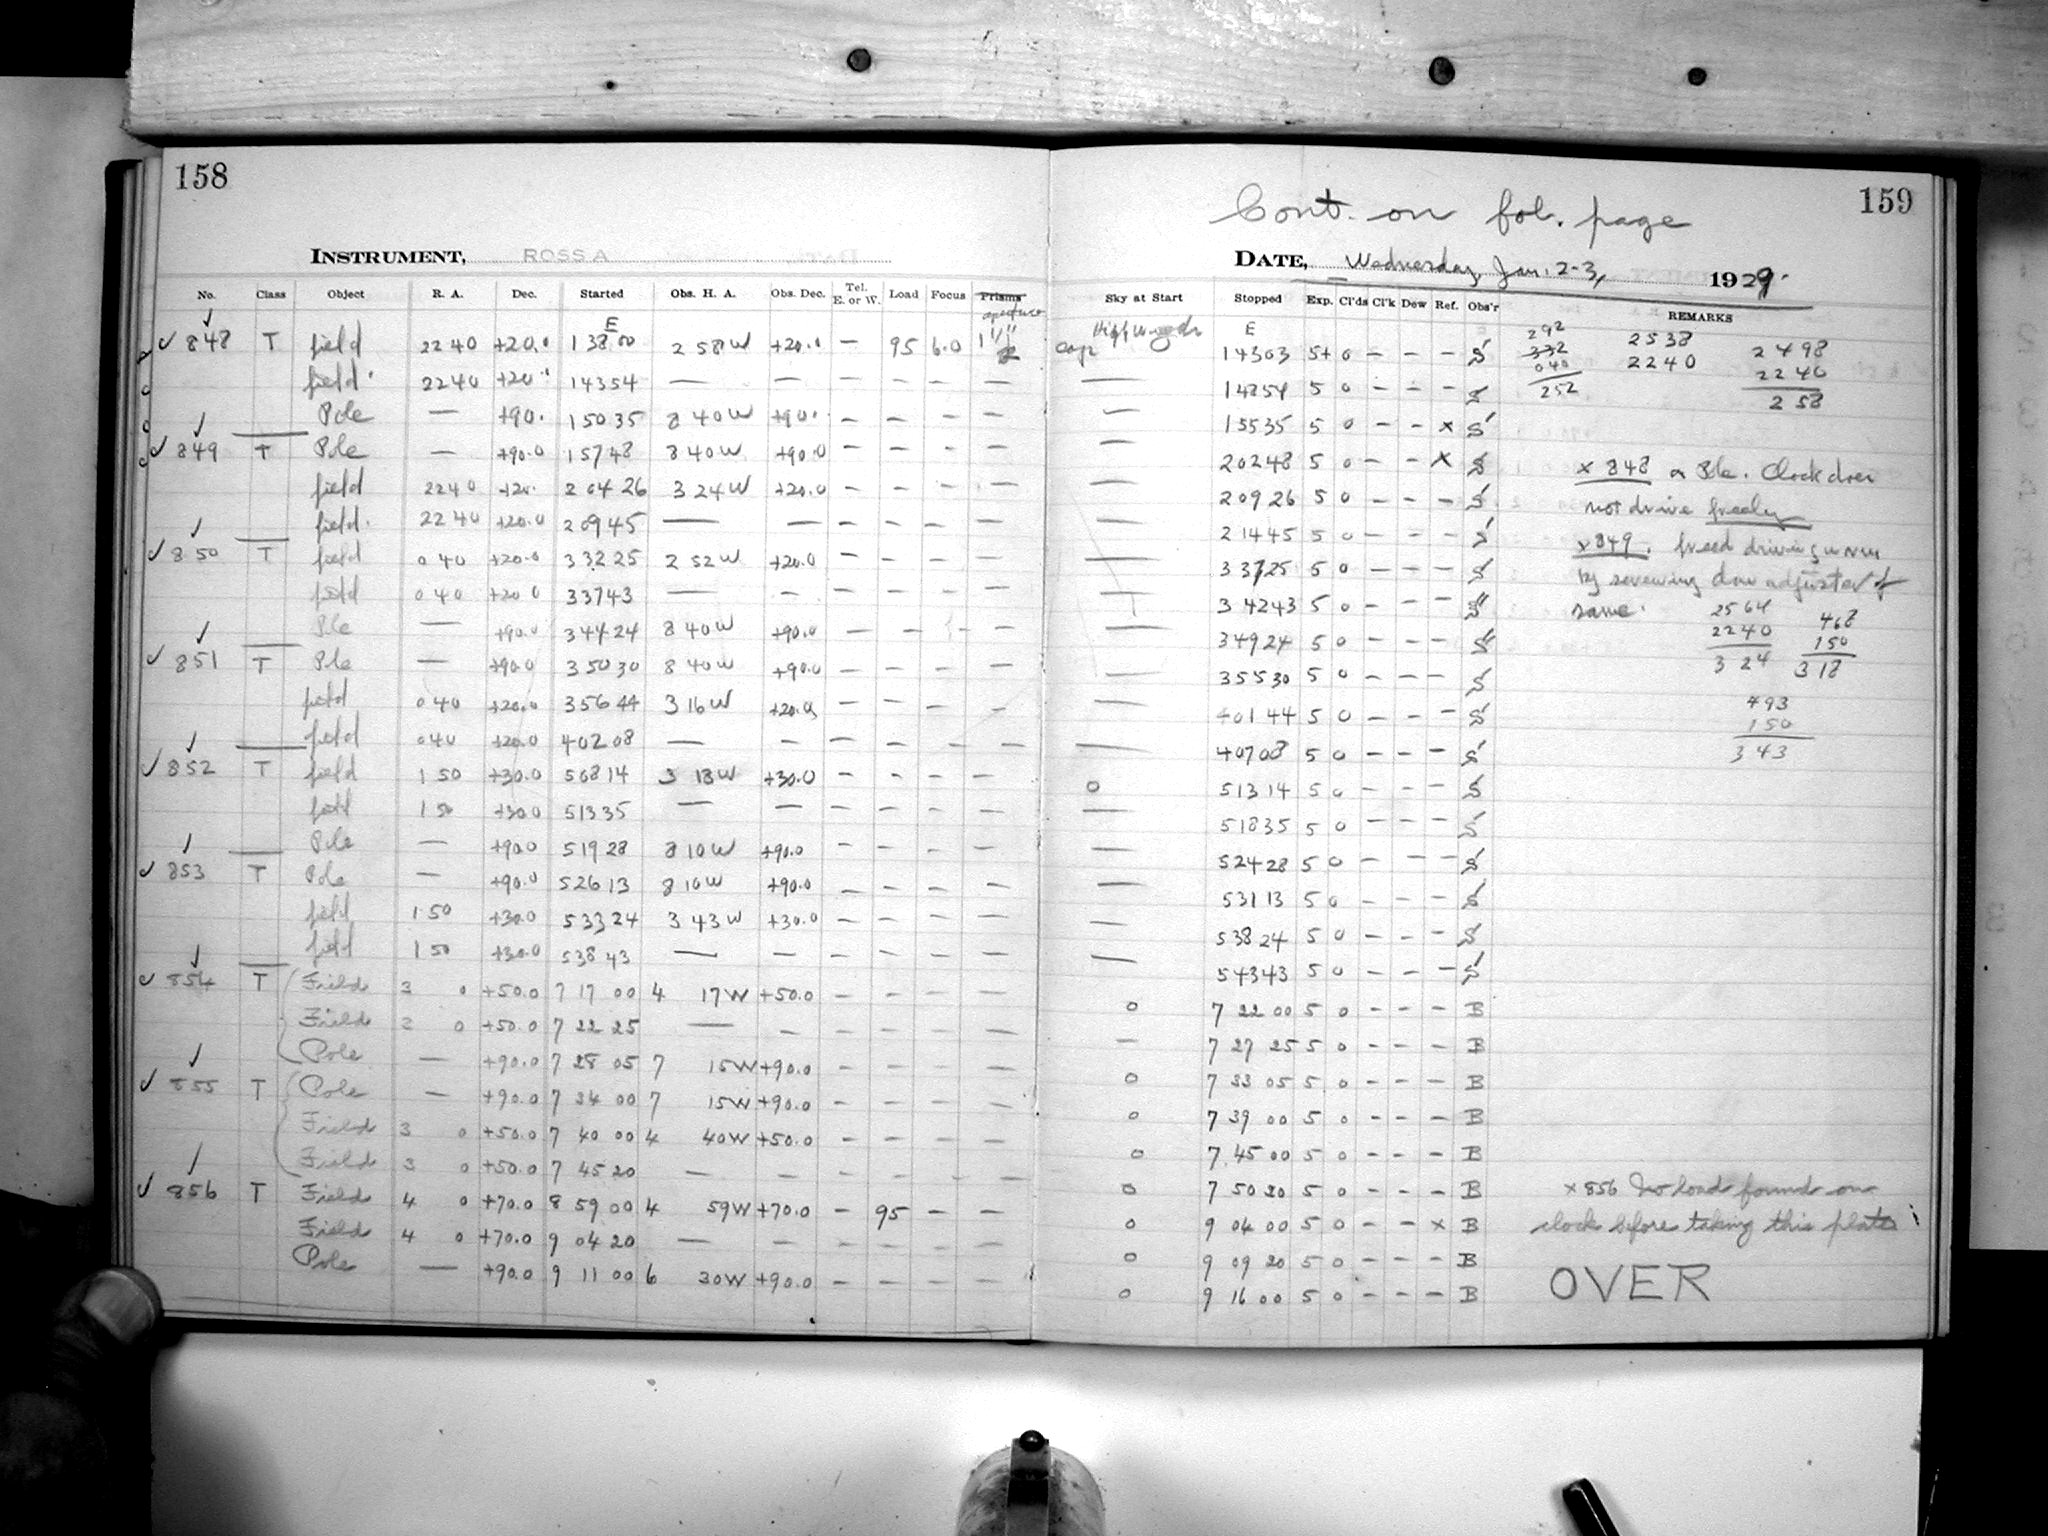 158
INSTRUMENT, ROSS A
No. Class Object R. A. Dec. Started Obs. H. A. Obs. Dec. Tel. E. or W. Load Focus Prisms
aperture
E
848 T field 22 40 +20.0 1 38 00 2 58 W +20.0 — 95 6.0
field 22 40 +20 1 43 54 — — — — — —
Pole — +90. 1 50 35 8 40 W +90. — — — —
849 T Pole — +90.0 1 57 48 8 40 W +90.0 — — — —
field 22 40 +20. 2 04 26 3 24 W +20.0 — — — —
field. 22 40 +20.0 2 09 45 — — — — — —
850 T field 0 40 +20.0 3 32 25 2 52 W +20.0 — — — —
field 0 40 +20 0 3 37 43 — — — — — —
Pole — +90.0 3 44 24 8 40 W +90.0 — — — —
851 T Pole — +90.0 3 50 30 8 40 W +90.0 — — — —
field 0 40 +20.0 3 56 44 3 16 W +20.0 — — — —
field 0 40 +20.0 4 02 08 — — — — — —
852 T field 1 50 +30.0 5 08 14 3 18 W +30.0 — — — —
field 1 50 +30.0 5 13 35 — — — — — —
Pole — +90.0 5 19 28 8 10 W +90.0 — — — —
853 T Pole — +90.0 5 26 13 8 10 W +90.0 — — — —
field 1 50 +30.0 5 33 24 3 43 W +30.0 — — — —
field 1 50 +30.0 5 38 43 — — — — — —
854 T Field 3 0 +50.0 7 17 00 4 17 W +50.0 — — — —
Field 3 0 +50.0 7 22 25 — — — — — —
Pole — +90.0 7 28 05 7 15 W +90.0 — — — —
855 T Pole — +90.0 7 34 00 7 15 W +90.0 — — — —
Field 3 0 +50.0 7 40 00 4 40 W +50.0 — — — —
Field 3 0 +50.0 7 45 20 — — — — — —
856 T Field 4 0 +70.0 8 59 00 4 59 W +70.0 — 95 — —
Field 4 0 +70.0 9 04 20 — — — — — —
Pole — +90.0 9 11 00 6 30 W +90.0 — — — —
159
Cont. on fol. page
DATE, Wednesday, Jan. 2-3, 1929.
Sky at Start Stopped Exp. Cl'ds Cl'k Dew Ref. Obs'r REMARKS
E
1 43 03 5+ 0 — — — S
— 1 48 54 5 0 — — — S
— 1 55 35 5 0 — — x S
— 2 02 48 5 0 — — x S
— 2 09 26 5 0 — — — S
— 2 14 45 5 0 — — — S
— 3 37 25 5 0 — — — S
3 42 43 5 0 — — — S
— 3 49 24 5 0 — — — S
— 3 55 30 5 0 — — — S
— 4 01 44 5 0 — — — S
— 4 07 08 5 0 — — — S
0 5 13 14 5 0 — — — S
— 5 18 35 5 0 — — — S
— 5 24 28 5 0 — — — S
— 5 31 13 5 0 — — — S
— 5 38 24 5 0 — — — S
— 5 43 43 5 0 — — — S
0 7 22 00 5 0 — — — B
— 7 27 25 5 0 — — — B
0 7 33 05 5 0 — — — B
0 7 39 00 5 0 — — — B
0 7 45 00 5 0 — — — B
0 7 50 20 5 0 — — — B
0 9 04 00 5 0 — — x B
0 9 09 20 5 0 — — — B
0 9 16 00 5 0 — — — B
292
332
040
252
2538
2240
2498
2240
258
x 848 on Pole. Clock does
not drive freely
x 849. freed driving worm
by screwing down adjuster of
same.
2564
2240
3 24
468
150
318
493
150
343
x 856 No load found on
clock before taking this plate
OVER